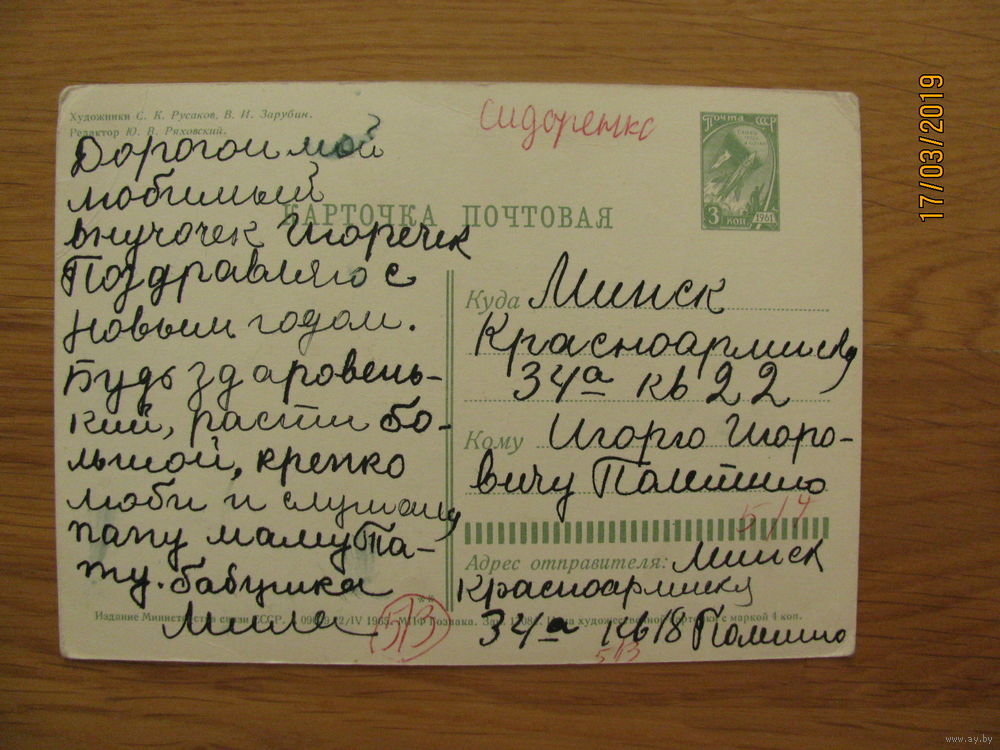 Художники С. К. Русаков, В. И. Зарубин.
Редактор Ю. В. Ряховский.
Сидоренко
Почта СССР
3 коп
1961
КАРТОЧКА ПОЧТОВАЯ
Дорогой мой
любимый
внучочек Игоречек
Поздравляю с
новым годом.
Будь здаровень-
кий, расти бо-
льшой, крепко
люби и слушай
папу маму Та-
ту. бабушка
Мила
Куда Минск
Красноармийская
34а кв 22
Кому Игорю Игоро-
вичу
5/4
Адрес отправителя: Минск
Красноармийская
34а кв 18
5В
5В
Издание Министерства связи СССР. 1965. МПФ Гознака. художественной карточки с маркой 4 коп.
17/03/2019
www.ay.by